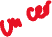 un ces